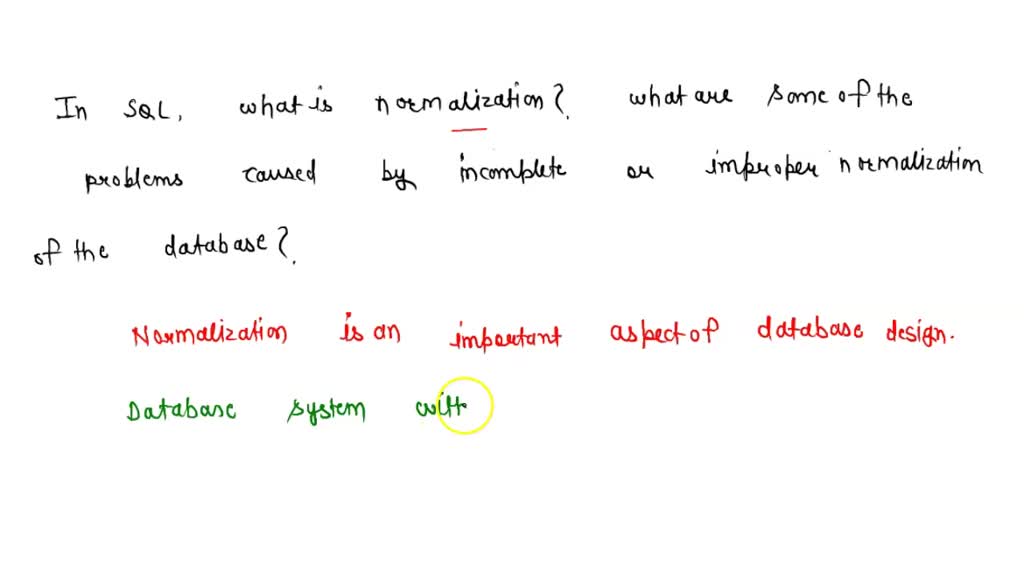 In SQL, what is normalization? what are some of the
problems caused by incomplete or improper normalization
of the database?
Normalization is an important aspect of database design.
Database system with